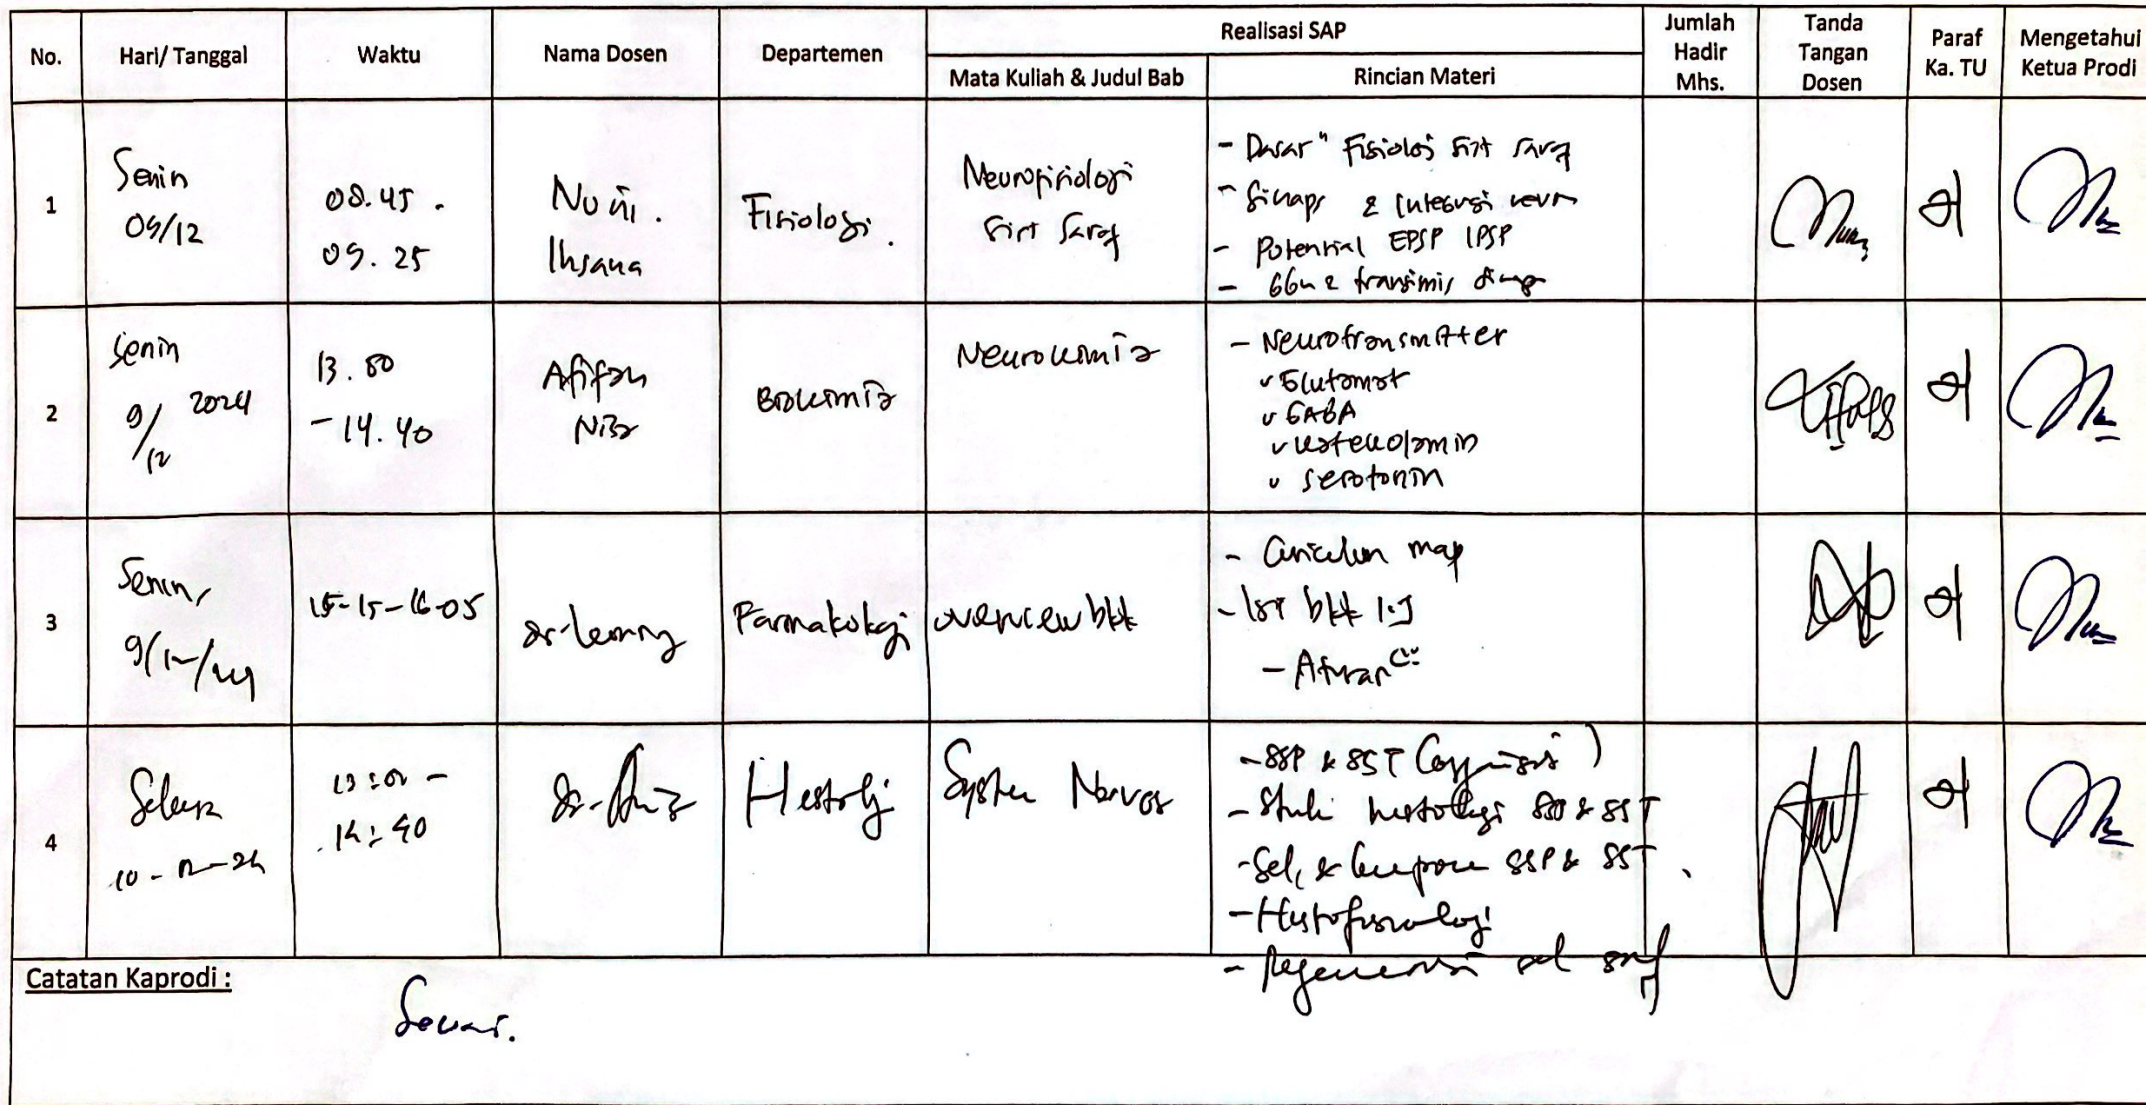 No.
Hari/ Tanggal
Waktu
Nama Dosen
Departemen
Realisasi SAP
Mata Kuliah & Judul Bab
Rincian Materi
Jumlah
Hadir
Mhs.
Tanda
Tangan
Dosen
Paraf
Ka. TU
Mengetahui
Ketua Prodi
1
Senin
09/12
08.45 .
09.25
Ihsana
Fisiologi.
Neurofisiologi
Sist Saraf
- Dasar" Fisiologi Sist Saraf
- Sinaps & Integrasi
- Potential EPSP IPSP
- transmisi
2
Senin
9/12 2024
13.50
-14.40
Afifah
Biokimia
Neurokimia
- Neurotransmitter
v Glutamat
v GABA
v katekolamin
v serotonin
3
Senin,
9/12/24
15-15-16-05
Farmakologi
overview blok
- Curiculum map
- isi blok 1.5
- Aturan
4
Selasa
10-12-24
13:00 -
14:40
Histologi
System Nervos
- SSP & SST
- histologi & SST
- Sel, & SSP & SST
- Histofisiologi
- Regenerasi sel saraf
Catatan Kaprodi :
Sesuai.